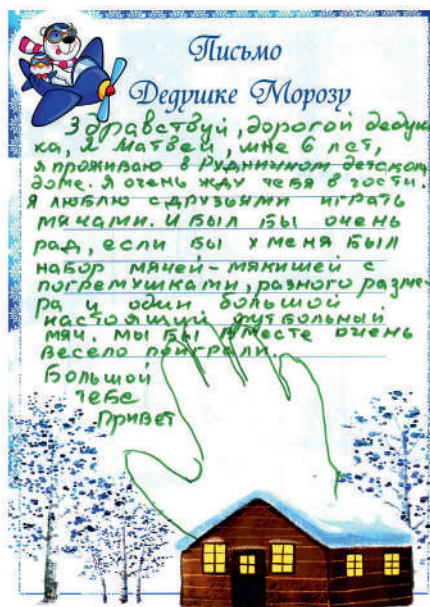 Письмо
Дедушке Морозу
Здравствуй, дорогой дедуш
ка, я Матвей, мне 6 лет,
я проживаю в Рудничном детском
доме. Я очень жду тебя в гости.
Я люблю с друзьями играть
мячами. И был бы очень
рад, если бы у меня был
набор мячей-мякишей с
погремушками, разного разме-
ра и один большой
настоящий футбольный
мяч. Мы бы вместе очень
весело поиграли.
Большой
тебе
привет